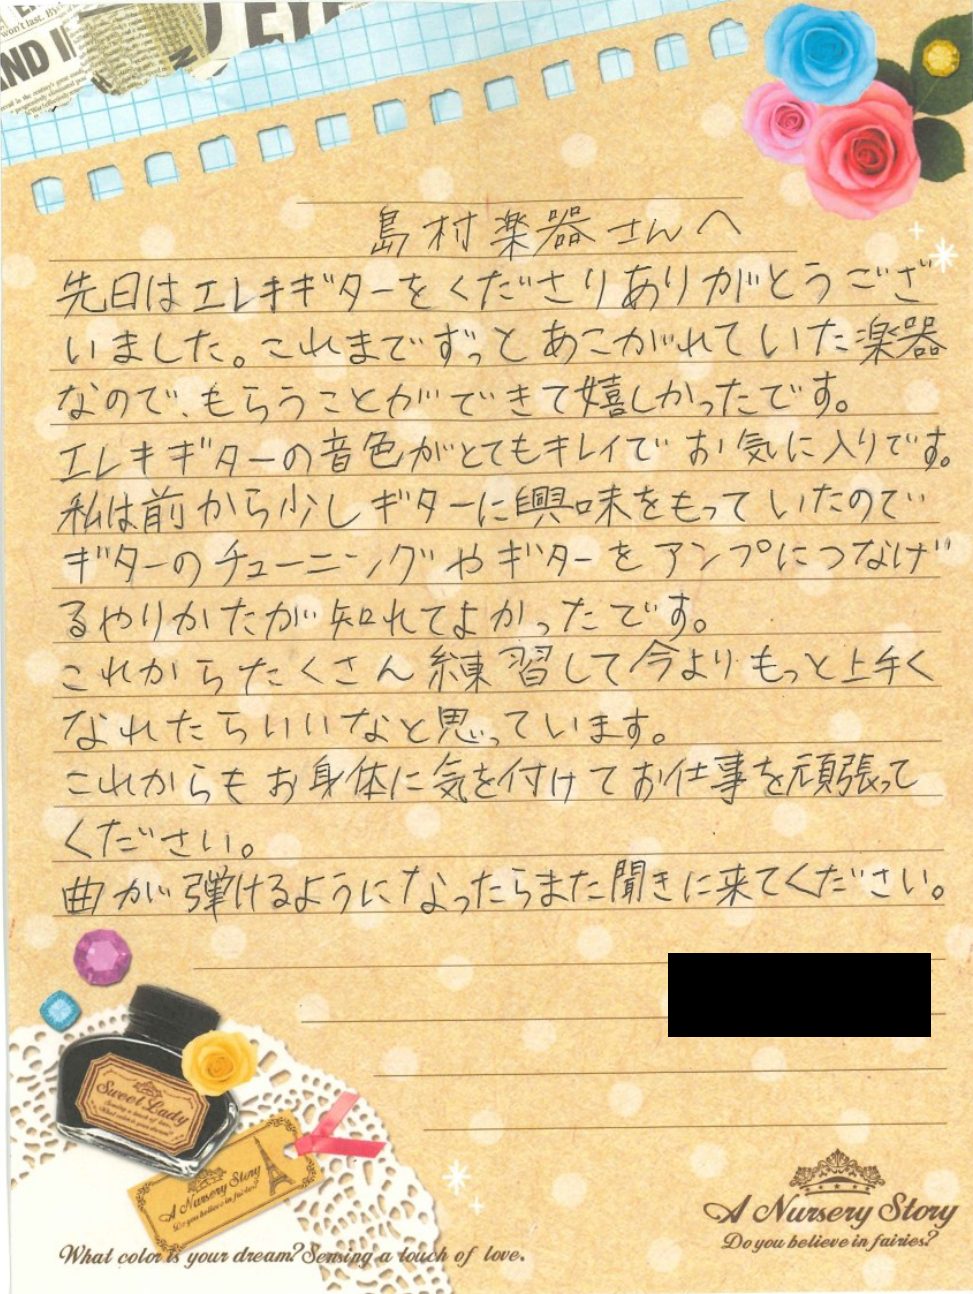 won't last. By
AND I
島村楽器さんへ
先日はエレキギターをくださりありがとうござ
いました。これまでずっとあこがれていた楽器
なので、もらうことができて嬉しかったです。
エレキギターの音色がとてもキレイでお気に入りです。
私は前から少しギターに興味をもっていたので
ギターのチューニングやギターをアンプにつなげ
るやりかたが知れてよかったです。
これからたくさん練習して今よりもっと上手く
なれたらいいなと思っています。
これからもお身体に気を付けてお仕事を頑張って
ください。
曲が弾けるようになったらまた聞きに来てください。
Sweet Lady
A Nursery Story
Do you believe in fairies?
What color is your dream? Sensing a touch of love.
A Nursery Story
Do you believe in fairies?